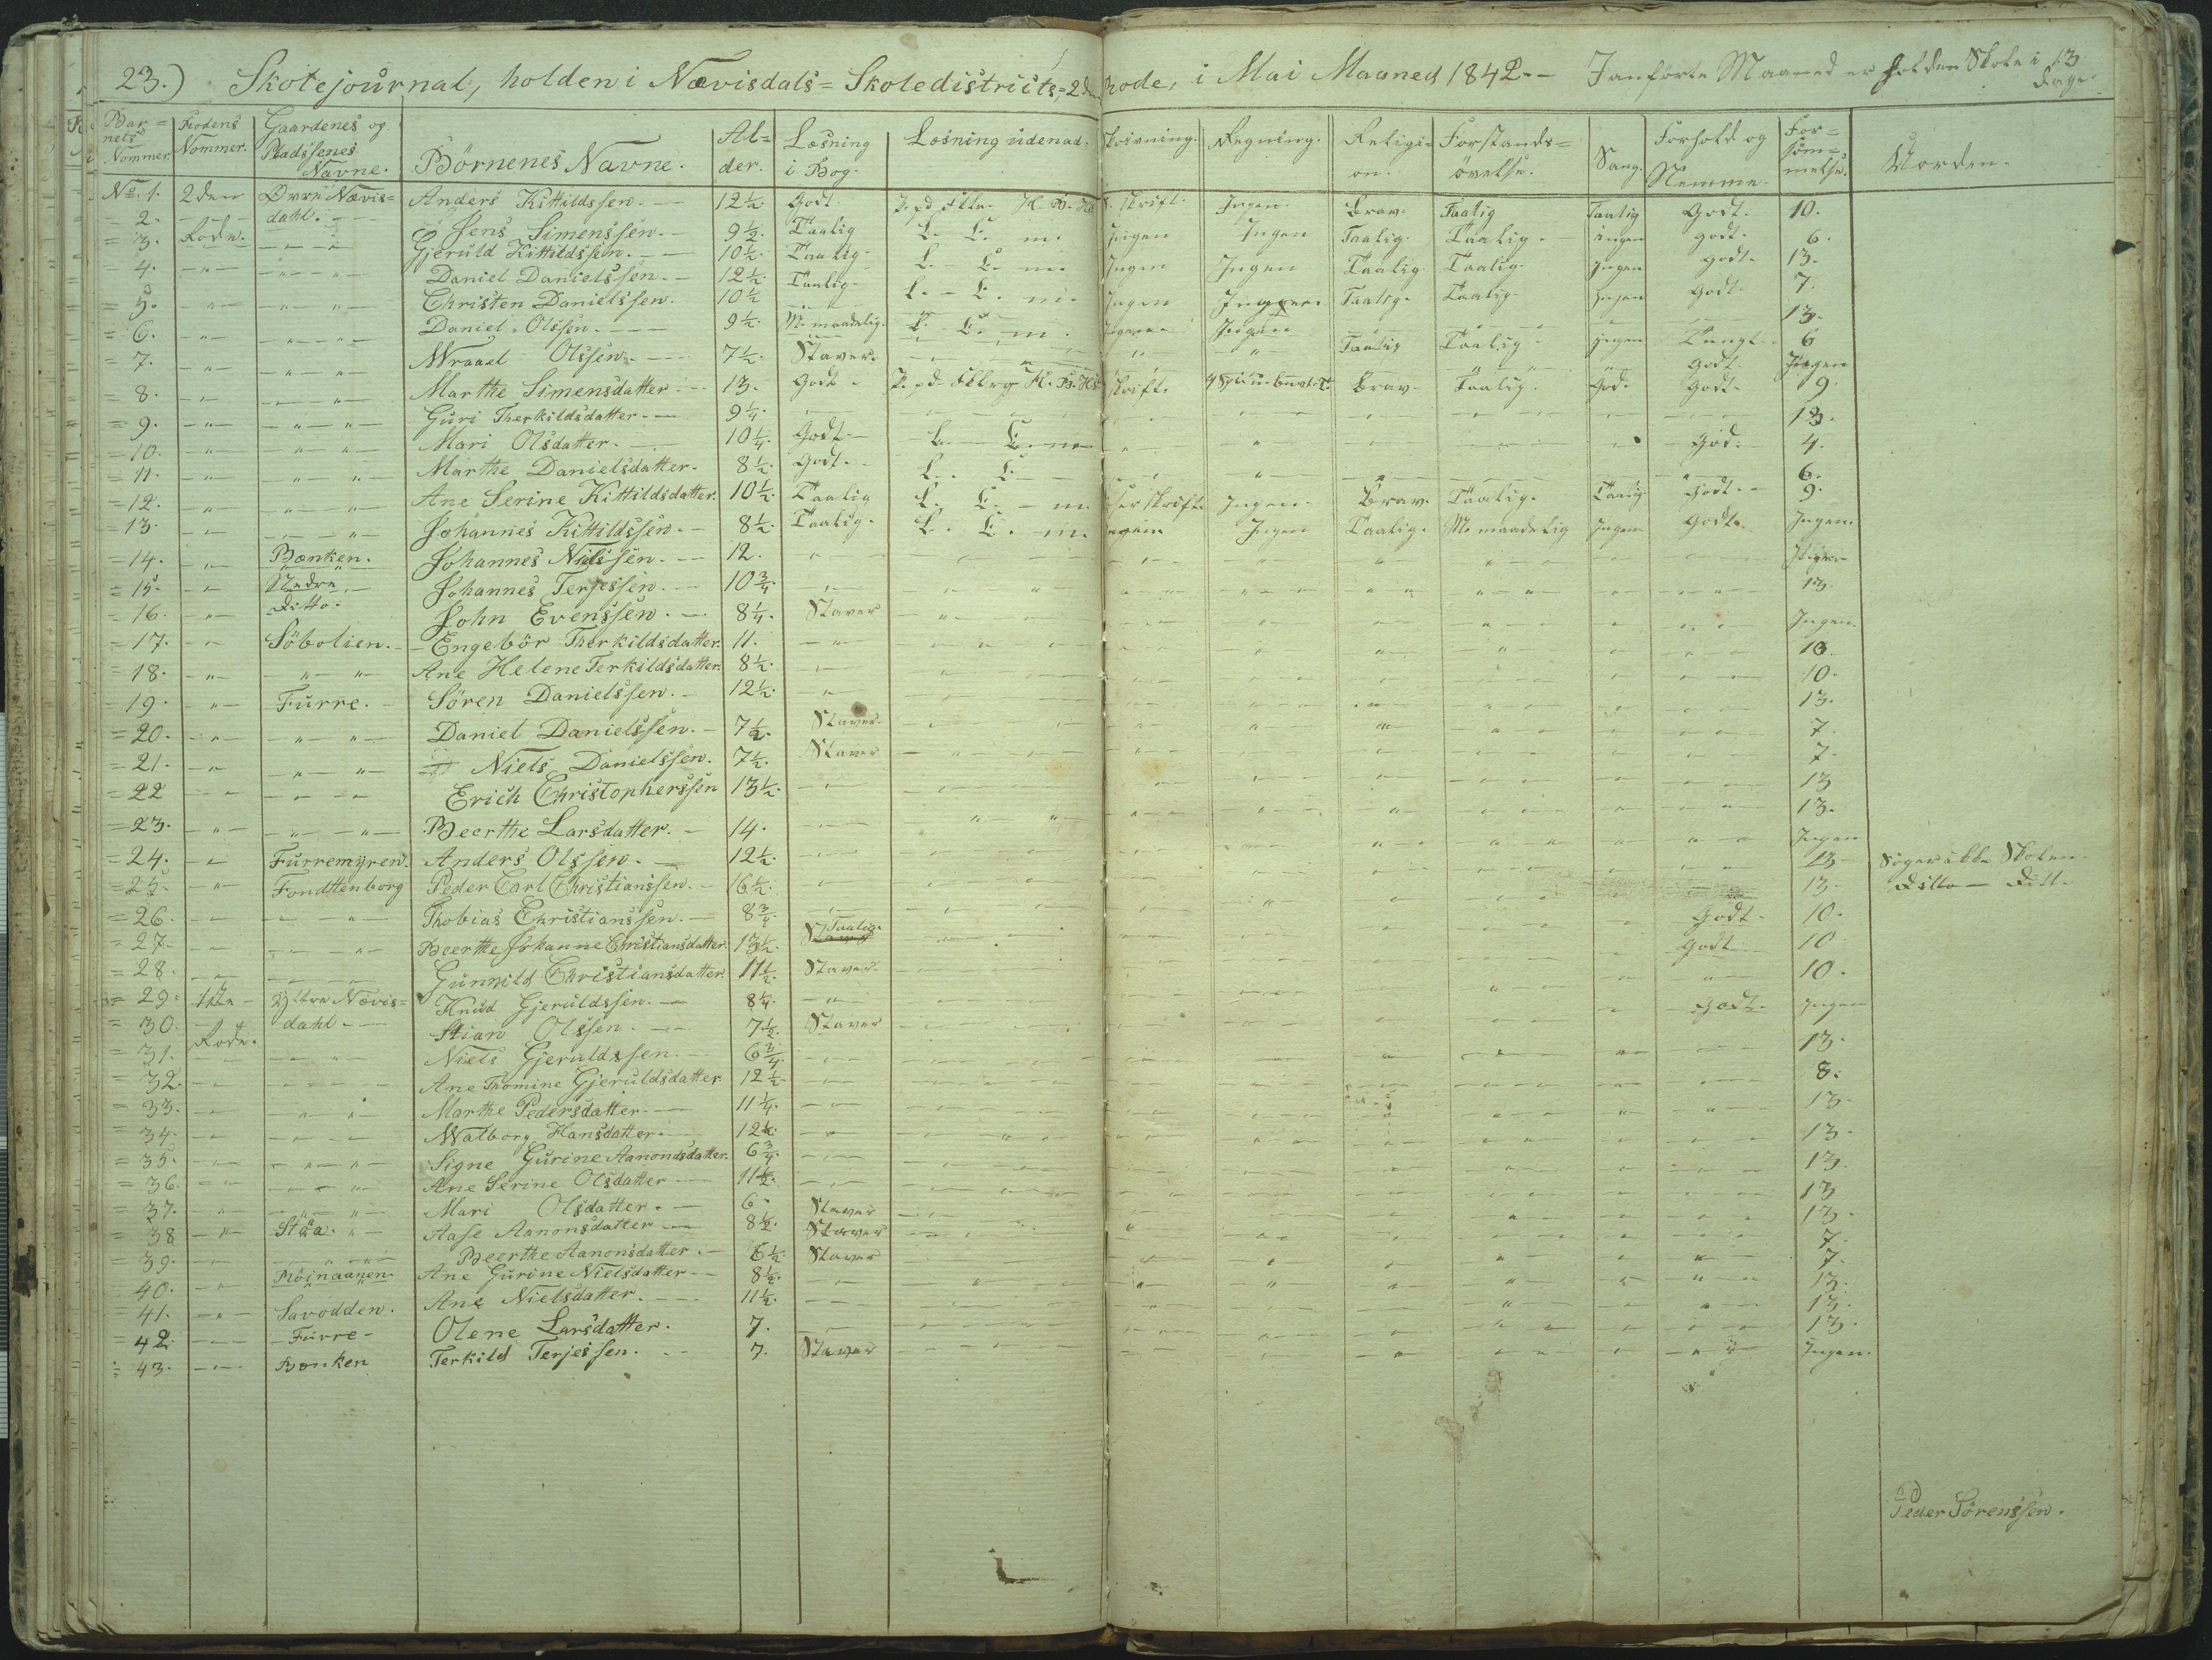 23.) Skolejournal, holden i Nævisdals= Skoledistricts, 2den Rode, i Mai Maaned 1842 -- I anførte Maaned er holden Skole i 13 Dage.
Bar=nets Nommer. Rodens Nommer. Gaardenes og Pladssenes Navne. Börnenes Navne. Al=der. Læsning i Bog. Læsning udenad. Skrivning. Regning. Religi=on. Forstands=övelse. Sang. Forhold og Nemme. For=söm=melse. Worden.
No. 1. 2den Øvre Nævis= Anders Kittildssen. 12½. Godt Skrift. Ingen. Brav. Taalig Taalig Godt. 10.
= 2. Rode. dahl. Jens Simenssen. 9½. Taalig L. L. m. Ingen Ingen Taalig. Taalig. Ingen Godt. 6.
= 3. Gjeruld Kittildssen. 10½. Taalig. L. L. m. Ingen Ingen Taalig. Taalig. Ingen Godt. 13.
= 4. Daniel Danielssen. 12½. Taalig. L. L. m. Ingen Ingen. Taalig. Taalig. Ingen Godt. 7.
= 5. Christen Danielssen. 10½ 13.
= 6. Daniel Olssen. 9½. M. maadelig. L. L. m. Ingen Ingen Taalig Taalig. Ingen Tungt. 6
= 7. Wraael Olssen. 7½. Staver. Godt. Ingen
= 8. Marthe Simensdatter. 13. Godt. Skrift. Brav. Taalig. God. Godt. 9.
= 9. Guri Therkildsdatter. 9¼. 13.
= 10. Mari Olsdatter. 10¼. Godt L. L. m God. 4.
= 11. Marthe Danielsdatter. 8½. Godt. L. L. 6.
= 12. Ane Serine Kittildsdatter. 10½. Taalig L. L. m. Ingen. Brav. Taalig. Taalig. Godt. 9.
= 13. Johannes Kittildssen. 8½. Taalig. L. L. m. Ingen Taalig. M. maadelig Ingen Godt. Ingen.
= 14. Bænken. Johannes Nilssen. 12. Ingen
= 15. Nedre Johannes Terjessen. 10¾. 13.
= 16. Ditto. John Evenssen. 8¼. Staver Ingen.
= 17. Söbolien. Engebör Therkildsdatter. 11. 10.
= 18. Ane Helene Terkildsdatter. 8½. 10.
= 19. Furre. Sören Danielssen. 12½. 13.
= 20. Daniel Danielssen. 7½. Staver. 7.
= 21. Niels Danielssen. 7½. Staver 7.
= 22 Erich Christopherssen 13½. 13
= 23. Beerthe Larsdatter. 14. 13.
= 24. Furremyren. Anders Olssen. 12½. Ingen
= 25. Fondttenborg Peder Carl Christianssen. 16½. 13 Söger ikke Skolen.
= 26. Thobias Christianssen. 8¾. 13. Ditto Ditto
= 27. Beerthe Johanne Christiansdatter. 13½. Taalig. Godt. 10.
= 28. Gunnild Christiansdatter. 11½. Staver. Godt 10
= 29. 1ste Yttre Nævis= Knud Gjeruldssen. 8¼. 10.
= 30. Rode. dahl. Stian Olssen. 7½. Staver Godt. Ingen
= 31. Niels Gjeruldssen. 6¾. 13.
= 32. Ane Thomine Gjeruldsdatter. 12½. 8.
= 33. Marthe Pedersdatter. 11¼. 13.
= 34. Walborg Hansdatter. 12 13.
= 35. Signe Gurine Aanondsdatter. 6¾. 13.
= 36. Ane Serine Olsdatter. 11½. 13
= 37. Mari Olsdatter. 6. Staver 13.
= 38 Stäa. Aase Aanonsdatter. 8½. Staver 7.
= 39. Beerthe Aanonsdatter. 6½. Staver 7.
40. Möinaanen. Ane Gurine Nielsdatter. 8½. 13.
= 41. Savodden. Ane Nielsdatter. 11½. 13.
= 42. Furre Olene Larsdatter. 7. 13.
= 43. Bænken Terkild Terjessen. 7. Staver Ingen.
Peder Sörenssen.